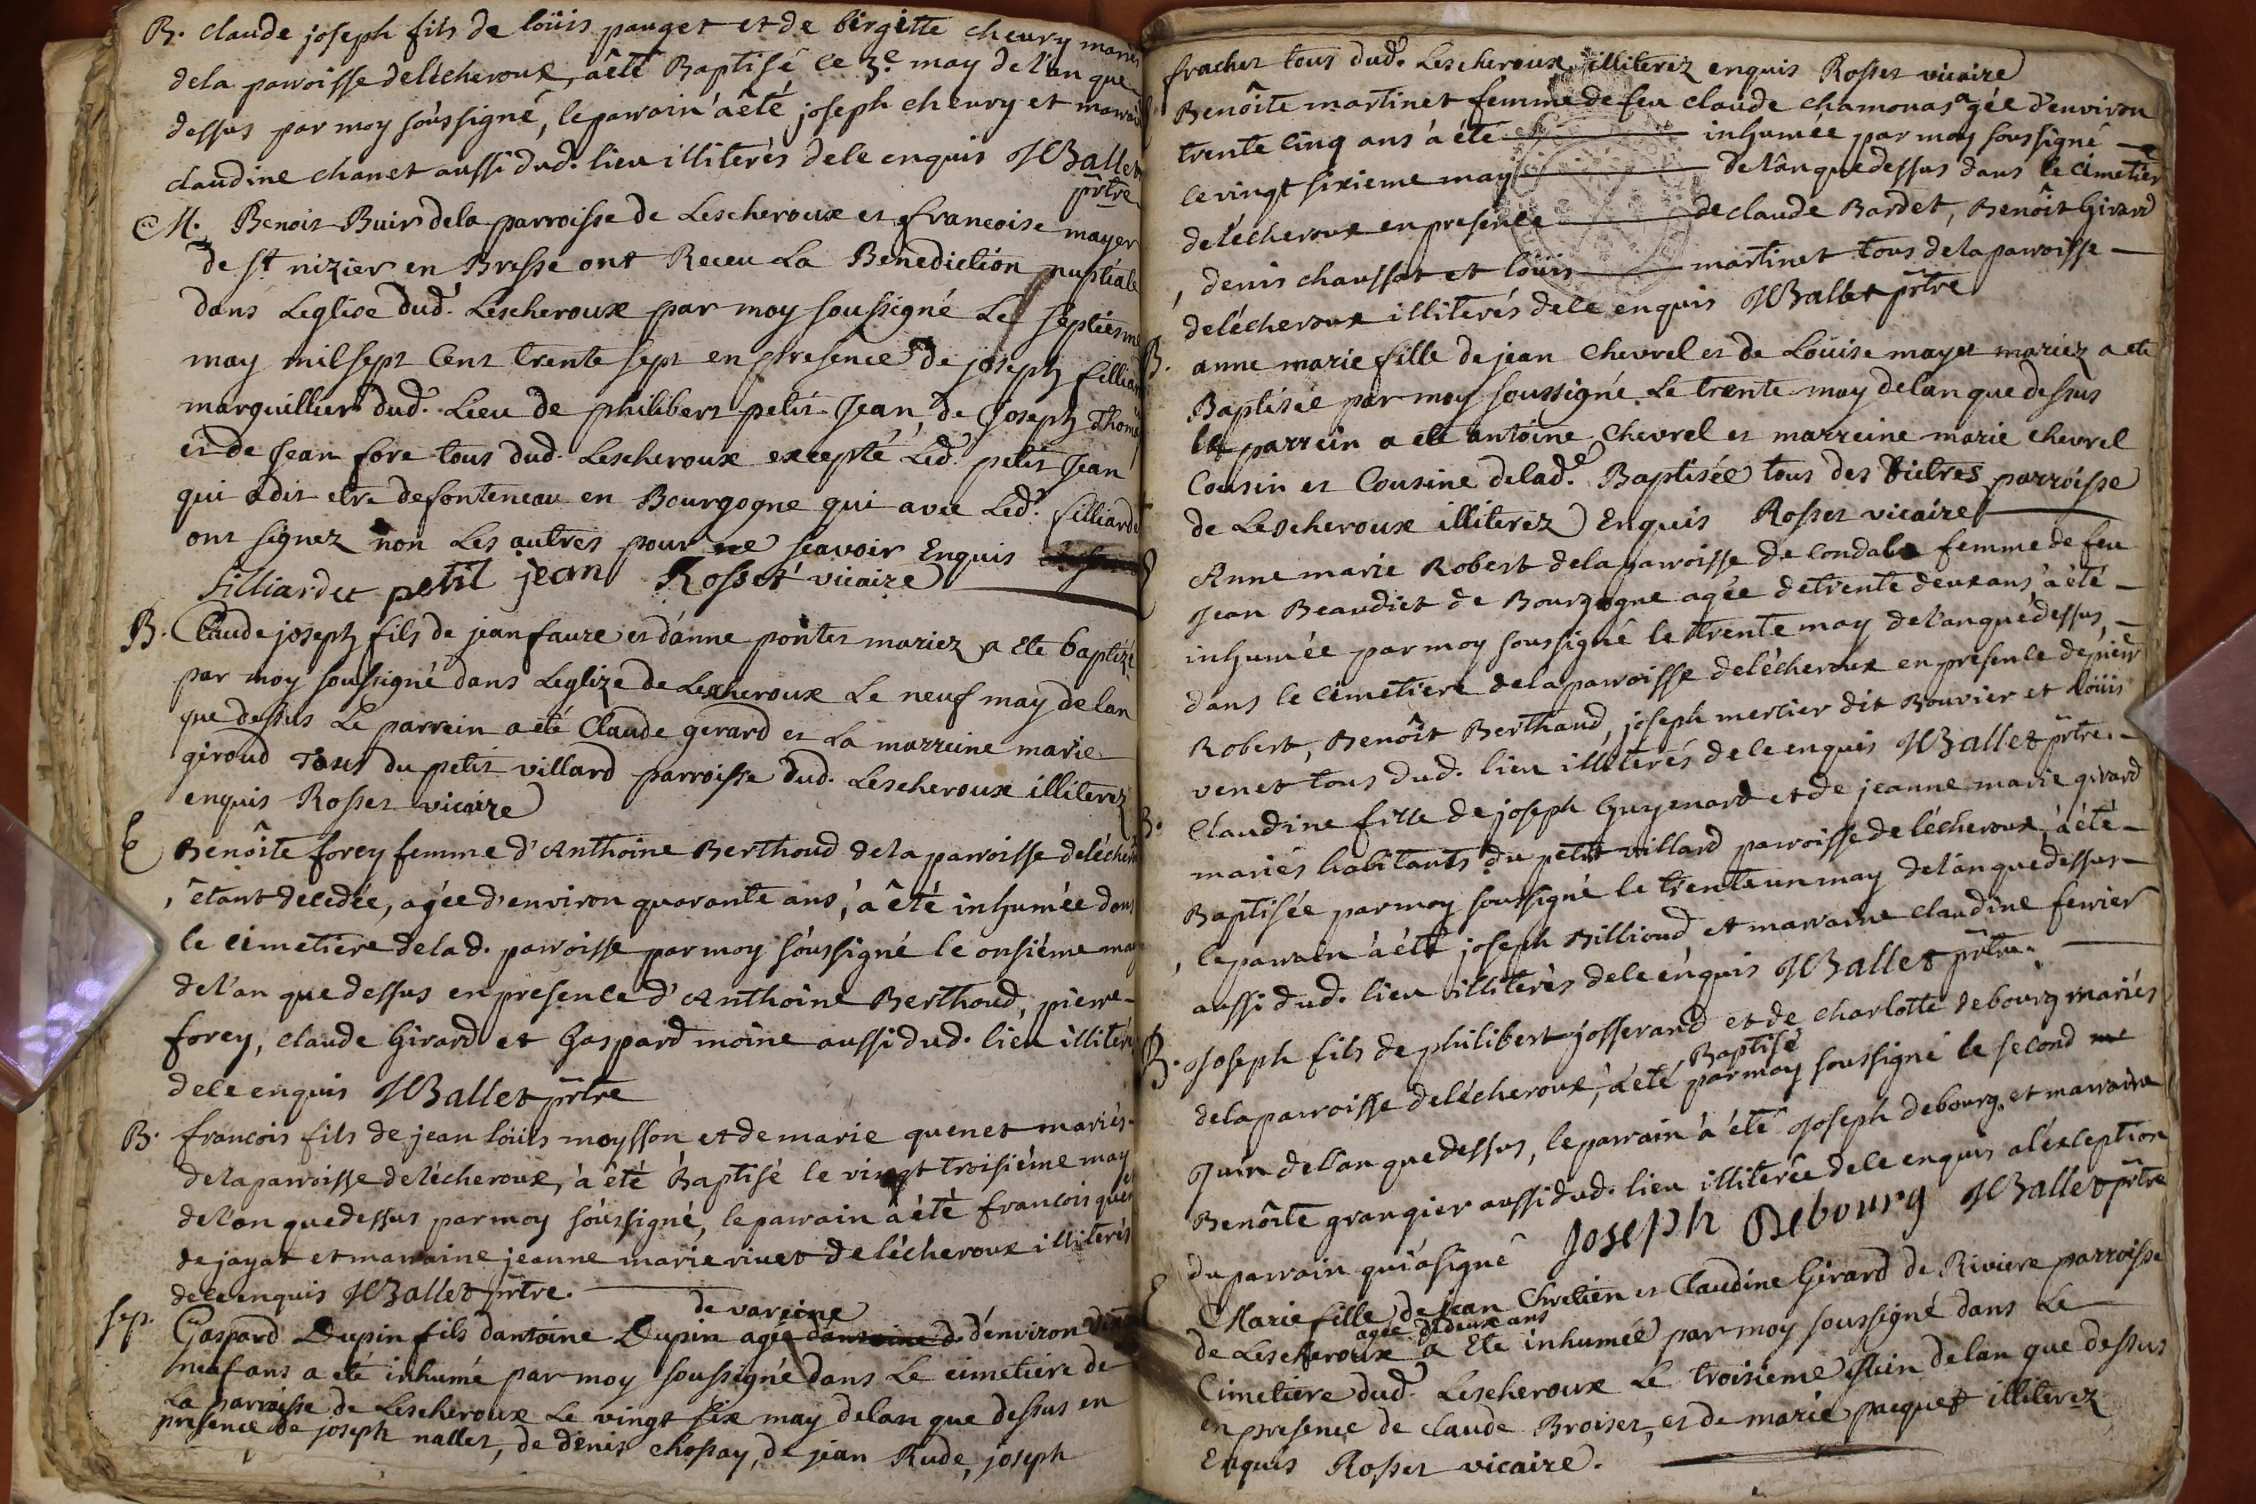 B. Claude joseph fils de loüis pauget et de birgitte cheury mariés
dela parroisse delécheroux, àêté Baptisé le 3.e may de l'an que
dessus par moy soûssigné, le parrain àêté joseph cheury et marrai
claudine chanet aussi dud. lieu illiterés de ce enquis JBallet
prtre
M. Benoit Buir dela parroisse de Lescheroux et francoise mayer
de st nizier en Bresse ont Receu La Benediction nuptiale
dans Leglise dud. Lescheroux par moy soussigné Le septiesme
may mil sept Cent trente sept en presence de joseph filliar
marguillier dud. Lieu de philibert petit Jean, de Joseph Thom
et de Jean fore tous dud. Lescheroux excepté Led. petit Jean
qui a dit etre defonteneau en Bourgogne qui avec Led. filliardet
ont signez non Les autres pour ne scavoir Enquis
filliardet petit jean Rosset vicaire
B. Claude joseph fils de jean faure et d'anne pontet mariez a Ete baptizé
par moy soussigné dans Leglize de Lescheroux Le neuf may de lan
que dessus Le parrein a eté Claude gerard et La marreine marie
giroud Tous du petit villard parroisse dud. Lescheroux illiterez
enquis Rosset vicaire
E Benoîte forey femme d'Anthoine Berthoud dela parroisse delécher
, êtant decedée, agée d'environ quarante ans, à êté inhumée dans
le cimetiere delad. parroisse par moy soûssigné le onsiéme may
de l'an que dessus en presence d'Anthoine Berthoud, pierre
forey, claude Girard et Gaspard moine aussi dud. lieu illiteré
dece enquis JBallet prtre
B. francois fils de jean loüis moysson et de marie quenet mariés
delaparroisse delécheroux, à êté Baptisé le vingt troisiéme may
del'an quedessus par moy soûssigné, leparrain àêté francois quenet
de jayat et marraine jeanne marie rivet delécheroux illiterés
dece enquis JBallet prtre.
sep. Gaspard Dupin fils dantoine Dupin de vareine agée d'environ
neuf ans a eté inhumé par moy soussigné dans Le cimetiere de
La parroisse de Lescheroux Le vingt six may delan que dessus en
presence de joseph nallet, de denis chossay, de jean Rude, joseph
frachet tous dud. Lescheroux illiterez enquis Rosset vicaire
Benôite martinet femme de feu claude chamouas agée d'environ
trente cinq ans à été inhumée par moy soussigné
le vingt sixieme may de l'an que dessus dans le cimetier
delécheroux en presence de claude Bardet, Benôit Girard
, denis chaussat et loüis martinet tous delaparroisse
delécheroux illiterés dece enquis JBallet prtre
B. anne marie fille de jean chevrel et de Loüise mayet mariez a eté
Baptisée par moy soussigné Le trente may delan que dessus
le parrein a eté antoine chevrel et marreine marie chevrel
Cousin et Cousine delad. Baptisée tous des vietres parroisse
de Lescheroux illiterez Enquis Rosset vicaire
Anne marie Robert delaparroisse de condal femme de feu
Jean Beaudiet de Bourgogne agée detrente deux ans à êté
inhumée par moy soussigné le trente may del'anquedessus,
dans le cimetiere delaparroisse delécheroux enpresence depierr
Robert, Benôit Berthaud, joseph mercier dit Bouvier et loüis
venet tous dud. lieu illiterés dece enquis JBallet prtre.
B. Claudine fille de joseph Guyenard et de jeanne marie girard
mariés habitants du petit villard parroisse delécheroux, àété
Baptisée parmoy soussigné le trente un may del'anquedessus
, leparrain àété joseph Billioud et marraine claudine ferrier
aussi dud. lieu illiterés dece enquis JBallet prtre.
B. Joseph fils de philibert josserand et de charlotte debourg mariés
delaparroisse delécheroux, àêté Baptisé parmoy soussigné le second
Juin del'an que dessus, leparrain à êté Joseph debourg et marraine
Benôite grangier aussi dud. lieu illiterêe dece enquis al'exception
du parrain qui àsigné Joseph Debourg JBallet prtre
E Marie fille de jean Chretien et Claudine Girard de Riviere parroisse
de Lescheroux agée de deux ans a Eté inhumée par moy soussigné dans Le
Cimetiere dud. Lescheroux Le troisieme juin delan que dessus
en presence de Claude Broiset, et de marie pacquet illiterez
Enquis Rosset vicaire.